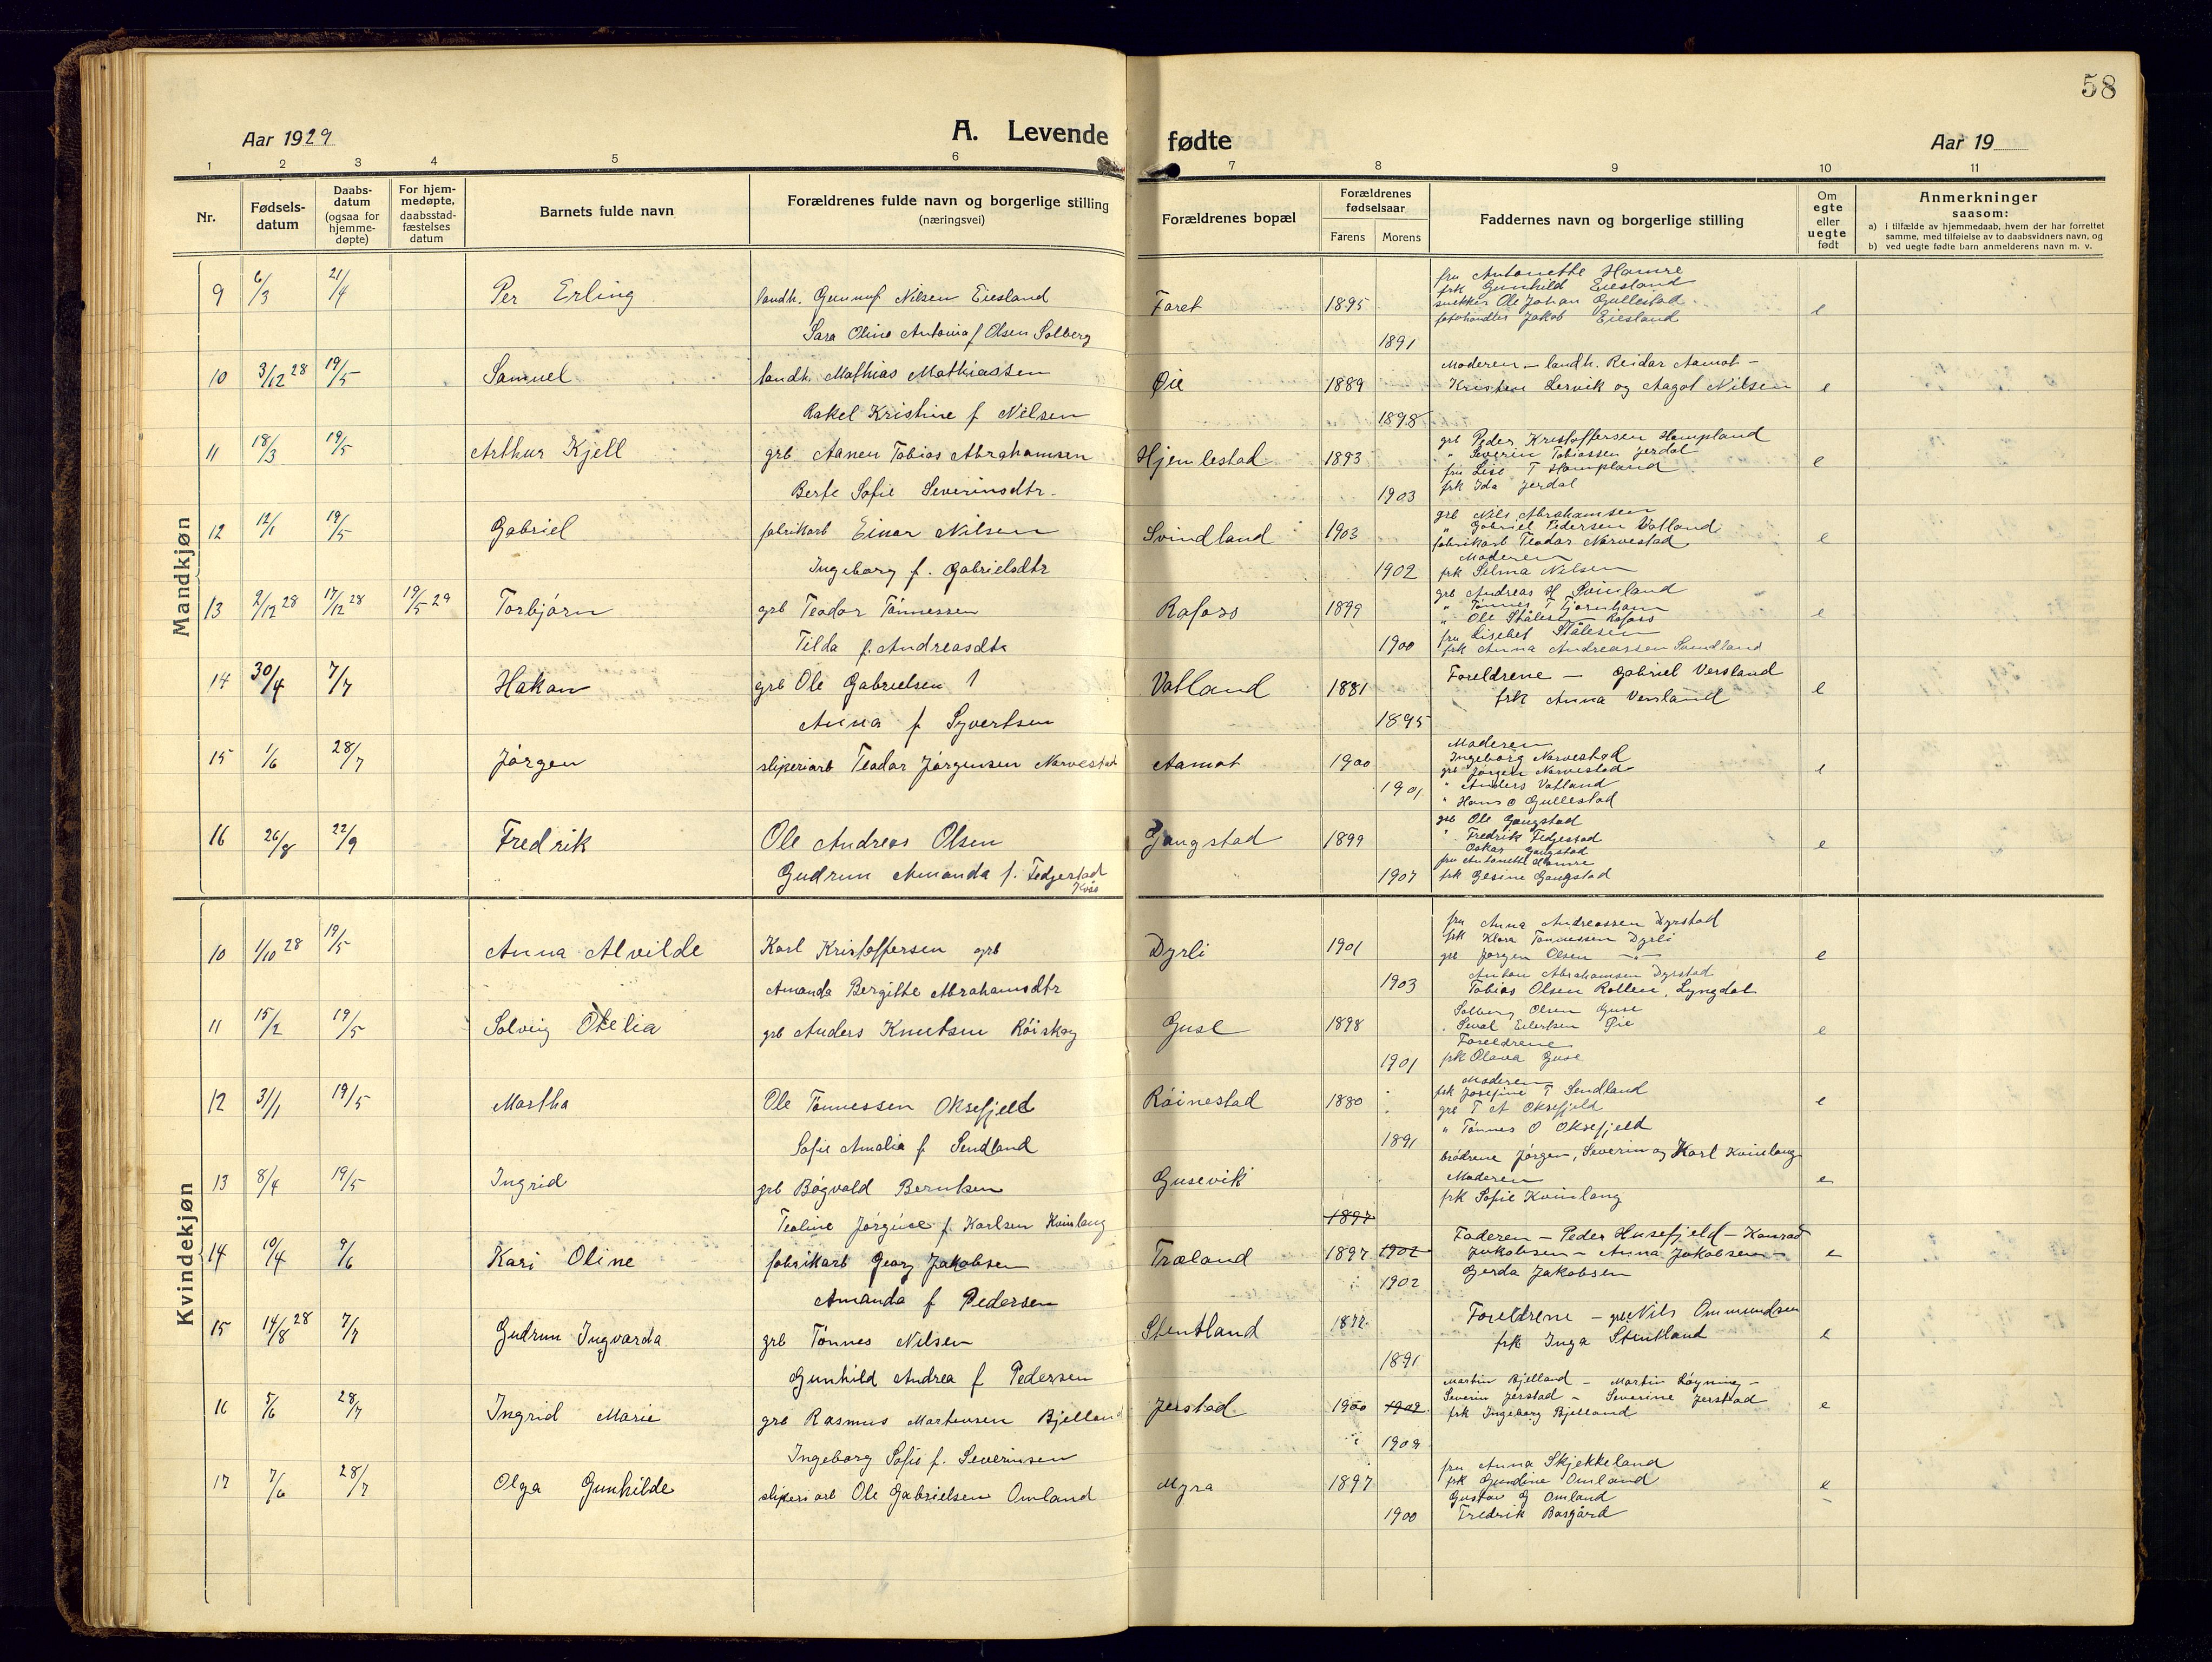 58
Aar 1929
A. Levende fødte
Aar 19
1 2 3 4 5 6 7 8 9 10 11
Nr.
Fødsels-datum
Daabs-datum (ogsaa for hjemme-døpte)
For hjem-medøpte, daabsstad-fæstelses datum
Barnets fulde navn
Forældrenes fulde navn og borgerlige stilling (næringsvei)
Forældrenes bopæl
Forældrenes fødselsaar
Farens Morens
Faddernes navn og borgerlige stilling
Om egte eller uegte født
Anmerkninger saasom:
a) i tilfælde av hjemmedaab, hvem der har forrettet samme, med tilføielse av to daabsvidners navn, og
b) ved uegte fødte barn anmelderens navn m. v.
Mandkjøn
fru Antonette Homre
frk Gunhild Eiesland
9 6/3 21/4 Per Erling landh. Gunnuf Nilsen Eiesland Faret 1895 snekker Ole Johan Gullestad e
Jakob Eiesland
Sara Oline Antonia f Olsen Solberg 1891
Moderen – landh. Reidar Aamot –
10 3/12 28 19/5 Samuel landh. Mathias Mathiassen Øie 1889 Kristine Lervik og Aagot Nilsen e
Rakel Kristine f Nilsen 1898
grb Peder Kristoffersen Hompland
11 18/3 19/5 Arthur Kjell grb Aanen Tobias Abrahamsen Hjemlestad 1893 " Severin Tobiassen Jerdal e
fru Lise T Hompland
Berte Sofie Severinsdtr. 1903 frk Ida Jerdal
grb Nils Abrahamsen
" Gabriel Pedersen Vatland
12 12/1 19/5 Gabriel fabrikarb Einar Nilsen Svindland 1903 fabrikarb Teodor Narvestad e
Moderen
Ingeborg f. Gabrielsdtr 1902 frk Selma Nilsen
grb Andreas H Svinland
13 2/12 28 17/12 28 19/5 29 Torbjørn grb Teodor Tønnessen Rafoss 1899 " Tønnes T Tjørnhom e
" Ole Stålesen Rafoss
fru Lisebet Stålesen
Tilda f. Andreasdtr 1900 frk Anna Andreassen Svindland
14 30/4 7/7 Håkon grb Ole Gabrielsen Vatland 1881 Foreldrene – Gabriel Versland e
frk Anna Versland
Anna f Syvertsen 1895
Moderen
Ingeborg Narvestad
15 1/6 28/7 Jørgen sliperiarb Teodor Jørgensen Narvestad Aamot 1900 grb Jørgen Narvestad e
1901 " Anders Vatland
" Hans O Gullestad
grb Ole Gangstad
16 26/8 22/9 Fredrik Ole Andreas Olsen Gangstad 1899 " Fredrik Fedgestad e
Oskar Gangstad
fru Antonette Homre
Gudrun Amanda f. Fedgestad Kvås 1907 frk Gesine Gangstad
Kvindekjøn
fru Anna Andreassen Dyrstad
frk Klara Tønnessen Dyrli
10 1/10 28 19/5 Anna Alvilde Karl Kristoffersen grb Dyrli 1901 grb Jørgen Olsen –"– e
Anton Abrahamsen Dyrstad
Amanda Bergitte Abrahamsdtr 1903 Tobias Olsen Rollen, Lyngdal
Solberg Olsen Guse
11 15/2 19/5 Solveig Otelia grb Anders Knutsen Röiskog Guse 1898 Seval Eilertsen Øie e
Foreldrene
1901 frk Olava Guse
Moderen
frk Josefine T Sendland
12 3/1 19/5 Martha Ole Tønnessen Oksefjeld Röinestad 1880 grb T A Oksefjeld e
" Tønnes O Oksefjeld
Sofie Amalia f Sendland 1891
brødrene Jørgen, Severin og Karl Kvinlaug
13 8/4 19/5 Ingrid grb Bøgvald Berntsen Gusevik Moderen e
frk Sofie Kvinlaug
Teoline Jørgine f. Karlsen Kvinlaug 1897
Faderen – Peder Husefjeld – Konrad
14 10/4 9/6 Kari Oline fabrikarb Georg Jakobsen Træland 1897 1902 Jakobsen – Anna Jakobsen – e
Gerda Jakobsen
Amanda f Pedersen 1902
Foreldrene – grb Nils Ommundsen
15 14/8 28 7/7 Gudrun Ingvarda grb Tønnes Nilsen Stentland 1872 frk Inga Stentland e
Gunhild Andrea f Pedersen 1891
Martin Bjelland – Martin Røyning –
Severin Jerstad – Severine Jerstad
16 5/6 28/7 Ingrid Marie grb Rasmus Martensen Bjelland Jerstad 1900 1909 frk Ingeborg Bjelland e
Ingeborg Sofie f. Severinsen 1909
fru Anna Skjekkeland
17 7/6 28/7 Olga Gunhilde sliperiarb Ole Gabrielsen Omland Myra 1897 frk Gundine Omland e
Gustav G Omland
1900 Fredrik Basgård